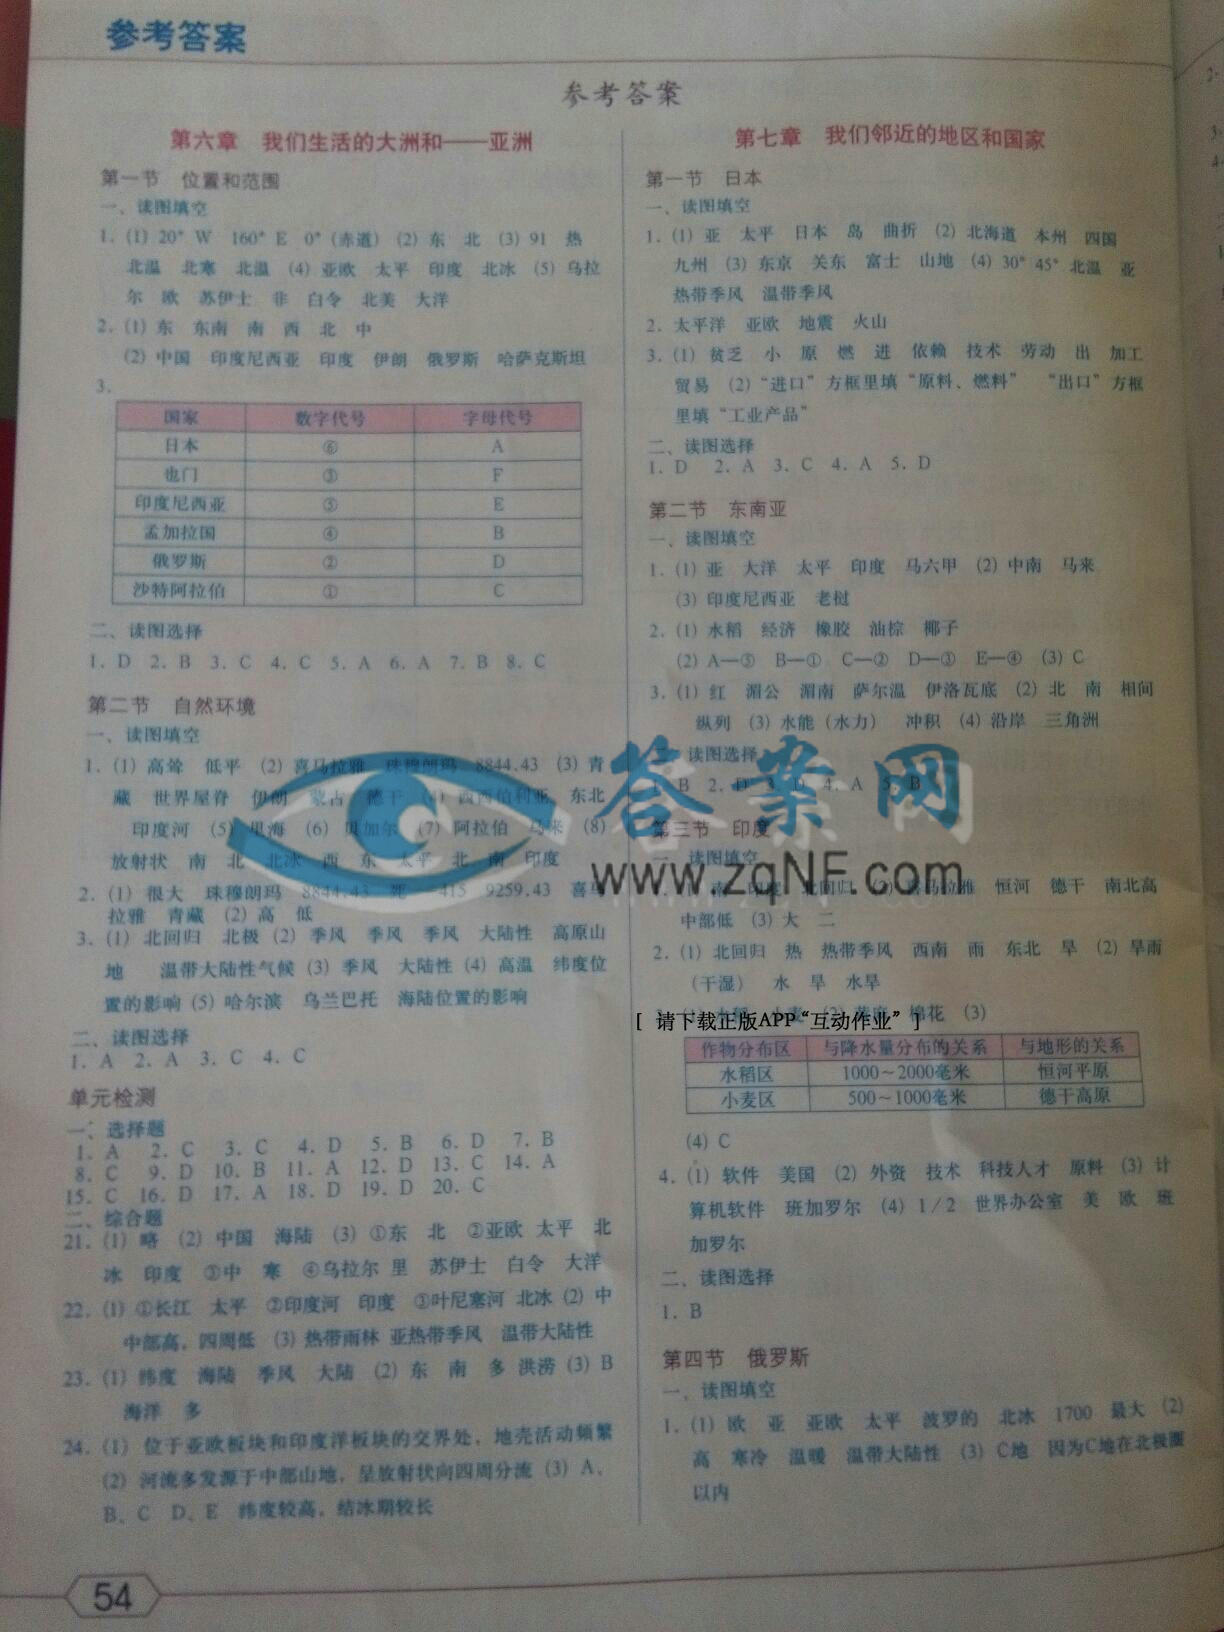 参考答案
参考答案
第六章 我们生活的大洲和——亚洲
第一节 位置和范围
一、读图填空
1. (1) 20° W 160° E 0° (赤道) (2) 东 北 (3) 91 热
北温 北寒 北温 (4) 亚欧 太平 印度 北冰 (5) 乌拉
尔 欧 苏伊士 非 白令 北美 大洋
2. (1) 东 东南 南 西 北 中
(2) 中国 印度尼西亚 印度 伊朗 俄罗斯 哈萨克斯坦
3.
国家 数字代号 字母代号
日本 ⑥ A
也门 ③ F
印度尼西亚 ⑤ E
孟加拉国 ④ B
俄罗斯 ② D
沙特阿拉伯 ① C
二、读图选择
1. D 2. B 3. C 4. C 5. A 6. A 7. B 8. C
第二节 自然环境
一、读图填空
1. (1) 高耸 低平 (2) 喜马拉雅 珠穆朗玛 8844.43 (3) 青
藏 世界屋脊 伊朗 蒙古 德干 (4) 西西伯利亚 东北
印度河 (5) 里海 (6) 贝加尔 (7) 阿拉伯 马来 (8)
放射状 南 北 北冰 西 东 太平 北 南 印度
2. (1) 很大 珠穆朗玛 8844.43 死 -415 9259.43 喜马
拉雅 青藏 (2) 高 低
3. (1) 北回归 北极 (2) 季风 季风 季风 大陆性 高原山
地 温带大陆性气候 (3) 季风 大陆性 (4) 高温 纬度位
置的影响 (5) 哈尔滨 乌兰巴托 海陆位置的影响
二、读图选择
1. A 2. A 3. C 4. C
单元检测
一、选择题
1. A 2. C 3. C 4. D 5. B 6. D 7. B
8. C 9. D 10. B 11. A 12. D 13. C 14. A
15. C 16. D 17. A 18. D 19. D 20. C
二、综合题
21. (1) 略 (2) 中国 海陆 (3) ①东 北 ②亚欧 太平 北
冰 印度 ③中 寒 ④乌拉尔 里 苏伊士 白令 大洋
22. (1) ①长江 太平 ②印度河 印度 ③叶尼塞河 北冰 (2) 中
中部高，四周低 (3) 热带雨林 亚热带季风 温带大陆性
23. (1) 纬度 海陆 季风 大陆 (2) 东 南 多 洪涝 (3) B
海洋 多
24. (1) 位于亚欧板块和印度洋板块的交界处，地壳活动频繁
(2) 河流多发源于中部山地，呈放射状向四周分流 (3) A、
B、C D、E 纬度较高，结冰期较长
54
第七章 我们邻近的地区和国家
第一节 日本
一、读图填空
1. (1) 亚 太平 日本 岛 曲折 (2) 北海道 本州 四国
九州 (3) 东京 关东 富士 山地 (4) 30° 45° 北温 亚
热带季风 温带季风
2. 太平洋 亚欧 地震 火山
3. (1) 贫乏 小 原 燃 进 依赖 技术 劳动 出 加工
贸易 (2) “进口”方框里填“原料、燃料” “出口”方框
里填“工业产品”
二、读图选择
1. D 2. A 3. C 4. A 5. D
第二节 东南亚
一、读图填空
1. (1) 亚 大洋 太平 印度 马六甲 (2) 中南 马来
(3) 印度尼西亚 老挝
2. (1) 水稻 经济 橡胶 油棕 椰子
(2) A—⑤ B—① C—② D—③ E—④ (3) C
3. (1) 红 湄公 湄南 萨尔温 伊洛瓦底 (2) 北 南 相间
纵列 (3) 水能（水力） 冲积 (4) 沿岸 三角洲
读图选择
B 2. D 3. D 4. A 5. B
答案网
www.zqNF.com
第三节 印度
一、读图填空
南 印度 北回归 (2) 喜马拉雅 恒河 德干 南北高
中部低 (3) 大 二
2. (1) 北回归 热 热带季风 西南 雨 东北 旱 (2) 旱雨
（干湿） 水 旱 水旱
(1) 水稻 小麦 (2) 黄麻 棉花 (3)
[ 请下载正版APP“互动作业” ]
作物分布区 与降水量分布的关系 与地形的关系
水稻区 1000～2000毫米 恒河平原
小麦区 500～1000毫米 德干高原
(4) C
4. (1) 软件 美国 (2) 外资 技术 科技人才 原料 (3) 计
算机软件 班加罗尔 (4) 1/2 世界办公室 美 欧 班
加罗尔
二、读图选择
1. B
第四节 俄罗斯
一、读图填空
1. (1) 欧 亚 亚欧 太平 波罗的 北冰 1700 最大 (2)
高 寒冷 温暖 温带大陆性 (3) C地 因为C地在北极圈
以内